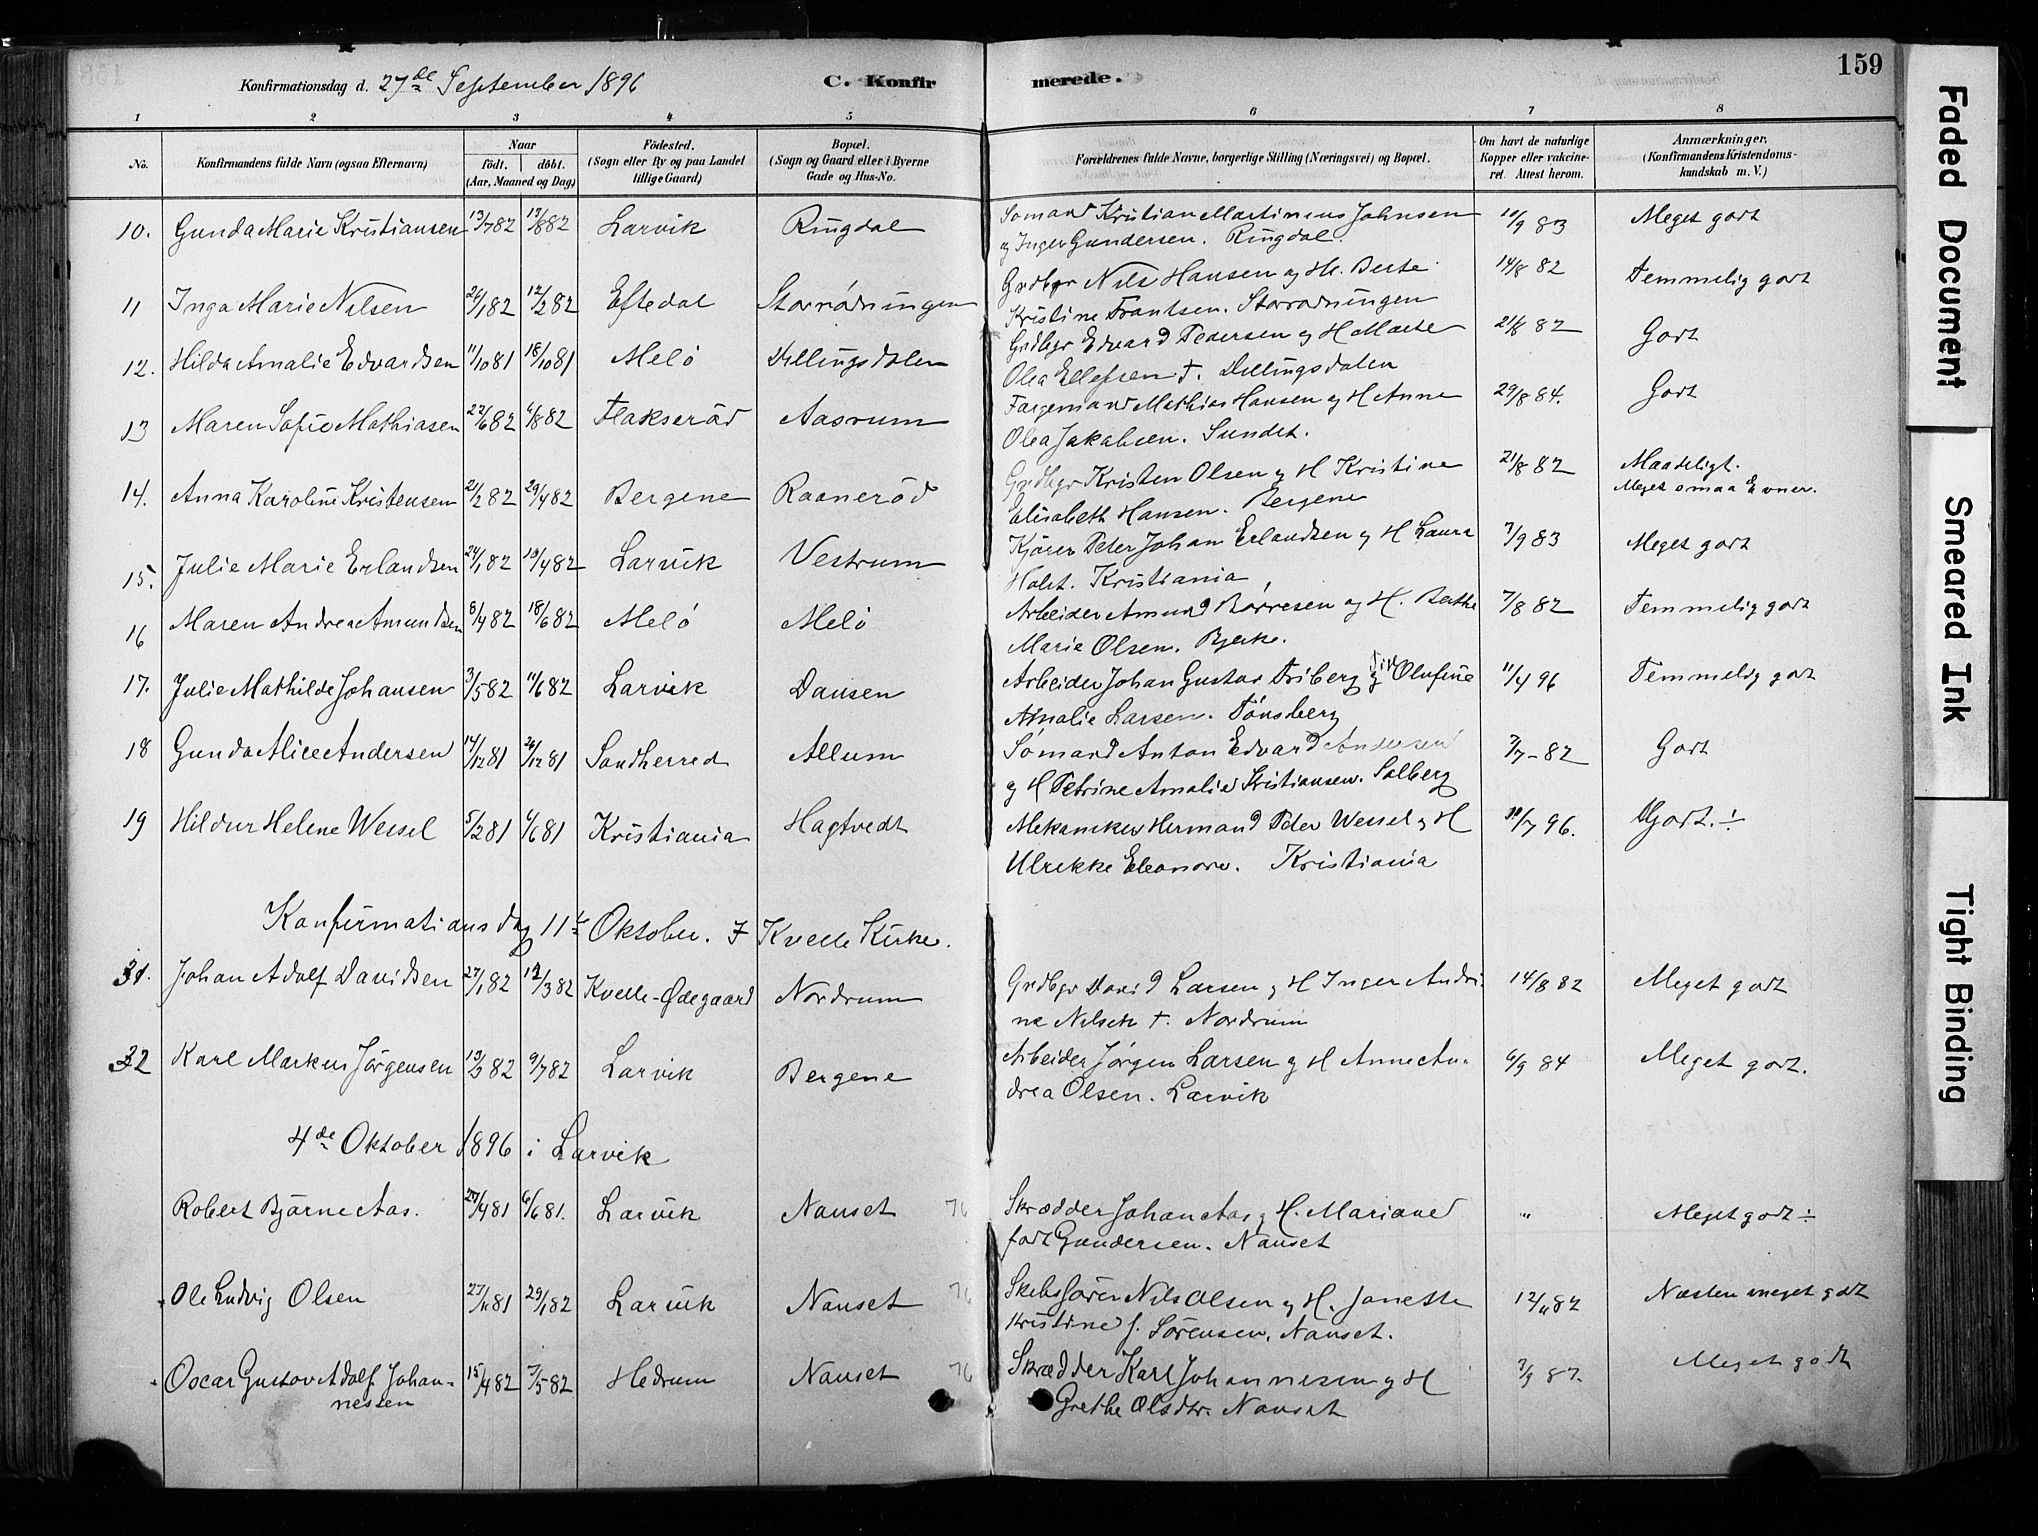 Konfirmationsdag d. 27de September 1896
C. Konfirmerede.
159
1 2 3 4 5 6 7 8
No.
Konfirmandens fulde Navn (ogsaa Efternavn)
Naar
födt. döbt.
(Aar, Maaned og Dag)
Födested.
(Sogn eller By og paa Landet
tillige Gaard)
Bopæl.
(Sogn og Gaard eller i Byerne
Gade og Hus-No.
Forældrenes fulde Navne, borgerlige Stilling (Næringsvei) og Bopæl.
Om havt de naturlige
Kopper eller vakcine-
ret. Attest herom.
Anmærkninger.
(Konfirmandens Kristendoms-
kundskab m. V.)
10. Gunda Marie Kristiansen 13/7 82 /8 82 Larvik Ringdal Sömand Kristian Martinius Johnsen 10/9 83 Meget godt
og Inger Gundersen. Ringdal.
11 Inga Marie Nilsen /1 82 12/2 82 Eftedal Storrödningen Grdbgr Nils Hansen og H. Berte 14/8 82 Temmelig godt
Kristine Frantsen. Storrödningen
12. Hilda Amalie Edvardsen 11/10 81 18/10 81 Melö Dillingsdalen Grdbgr Edvard Pedersen og H Marte 21/8 82 Godt
Olea Ellefsen †. Dillingsdalen
13 Maren Sofie Mathiasen 22/6 82 6/8 82 Flakseröd Aasrum Fargemand Mathias Hansen og H Anne 29/8 84. Godt
Olea Jakobsen. Sundet.
14. Anna Karoline Kristensen 21/2 82 29/4 82 Bergene Raaneröd Grdbgr Kristen Olsen og H Kristine 21/8 82 Maadeligt.
Meget smaa Evner.
Elisabeth Hansen. Bergene
15. Julie Marie Erlandsen 24/1 82 10/4 82 Larvik Vestrum Kjörer Peter Johan Erlandsen og H Laura 7/9 83 Meget godt
Holst. Kristiania
16 Maren Andrea Amundsen 8/4 82 18/6 82 Melö Melö Arbeider Amund Börresen og H. Berthe 7/8 82 Temmelig godt
Marie Olsen. Bjerke.
17. Julie Mathilde Johansen 3/5 82 11/6 82 Larvik Dansen Arbeider Johan Gustav Friberg og Olufine 11/4 96 Temmelig godt
Amalie Larsen. Tönsberg
18 Gunda Alice Andersen 14/12 81 26/12 81 Sandherred Allum Sömand Anton Edvard Andersen 3/7 - 82 Godt
og H Petrine Amalie Kristiansen. Solberg
19 Hildur Helene Wessel 5/2 81 6/6 81 Kristiania Hagtvedt Mekaniker Hermand Peder Wessel og H 10/7 96. Godt. ÷
Ulrikke Eleonore. Kristiania
Konfirmationsdag 11te Oktober. I Kvelle Kirke.
31. Johan Adolf Davidsen 27/1 82 12/3 82 Kvelle-Ødegaard Nordrum Grdbgr David Larsen og H Inger Andri- 14/8 82 Meget godt
ne Nilsen †. Nordrum
32 Karl Markus Jörgensen 19/3 82 9/7 82 Larvik Bergene Arbeider Jörgen Larsen og H Anne An- 6/9 84 Meget godt.
drea Olsen. Larvik
4de Oktober 1896 i Larvik
Robert Bjarne Aas. 27/4 81 6/6 81. Larvik Nanset 76 Skrædder Johan Aas og H. Mariane " Meget godt ÷
født Gundersen. Nanset
Ole Ludvig Olsen 27/11 81 29/1 82 Larvik Nanset 76 Skibsförer Nils Olsen og H. Janette 12/11 82 Næsten meget godt
Kristine f. Sörensen. Nanset.
Oscar Gustav Adolf Johan- 15/4 82 7/5 82 Hedrum Nanset 76 Skrædder Karl Johannesen og H 3/9 87. Meget godt
nessen
Grethe Olsdtr. Nanset
Faded Document
Smeared Ink
Tight Binding